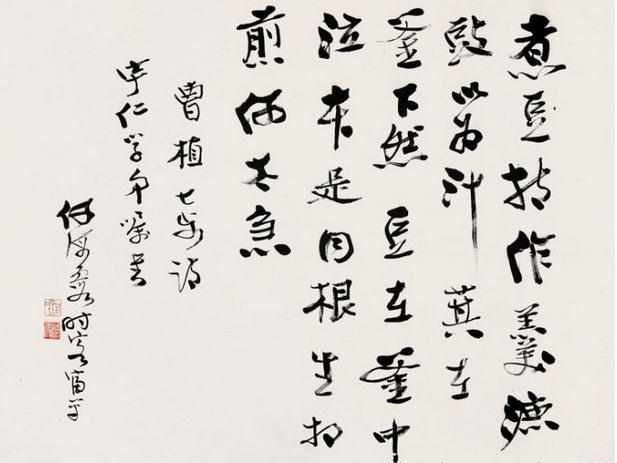 煮豆持作羹漉
豉以为汁萁在
釜下然豆在釜中
泣本是同根生相
煎何太急
曹植七步诗
宇仁学弟嘱书
何海霞时客富平